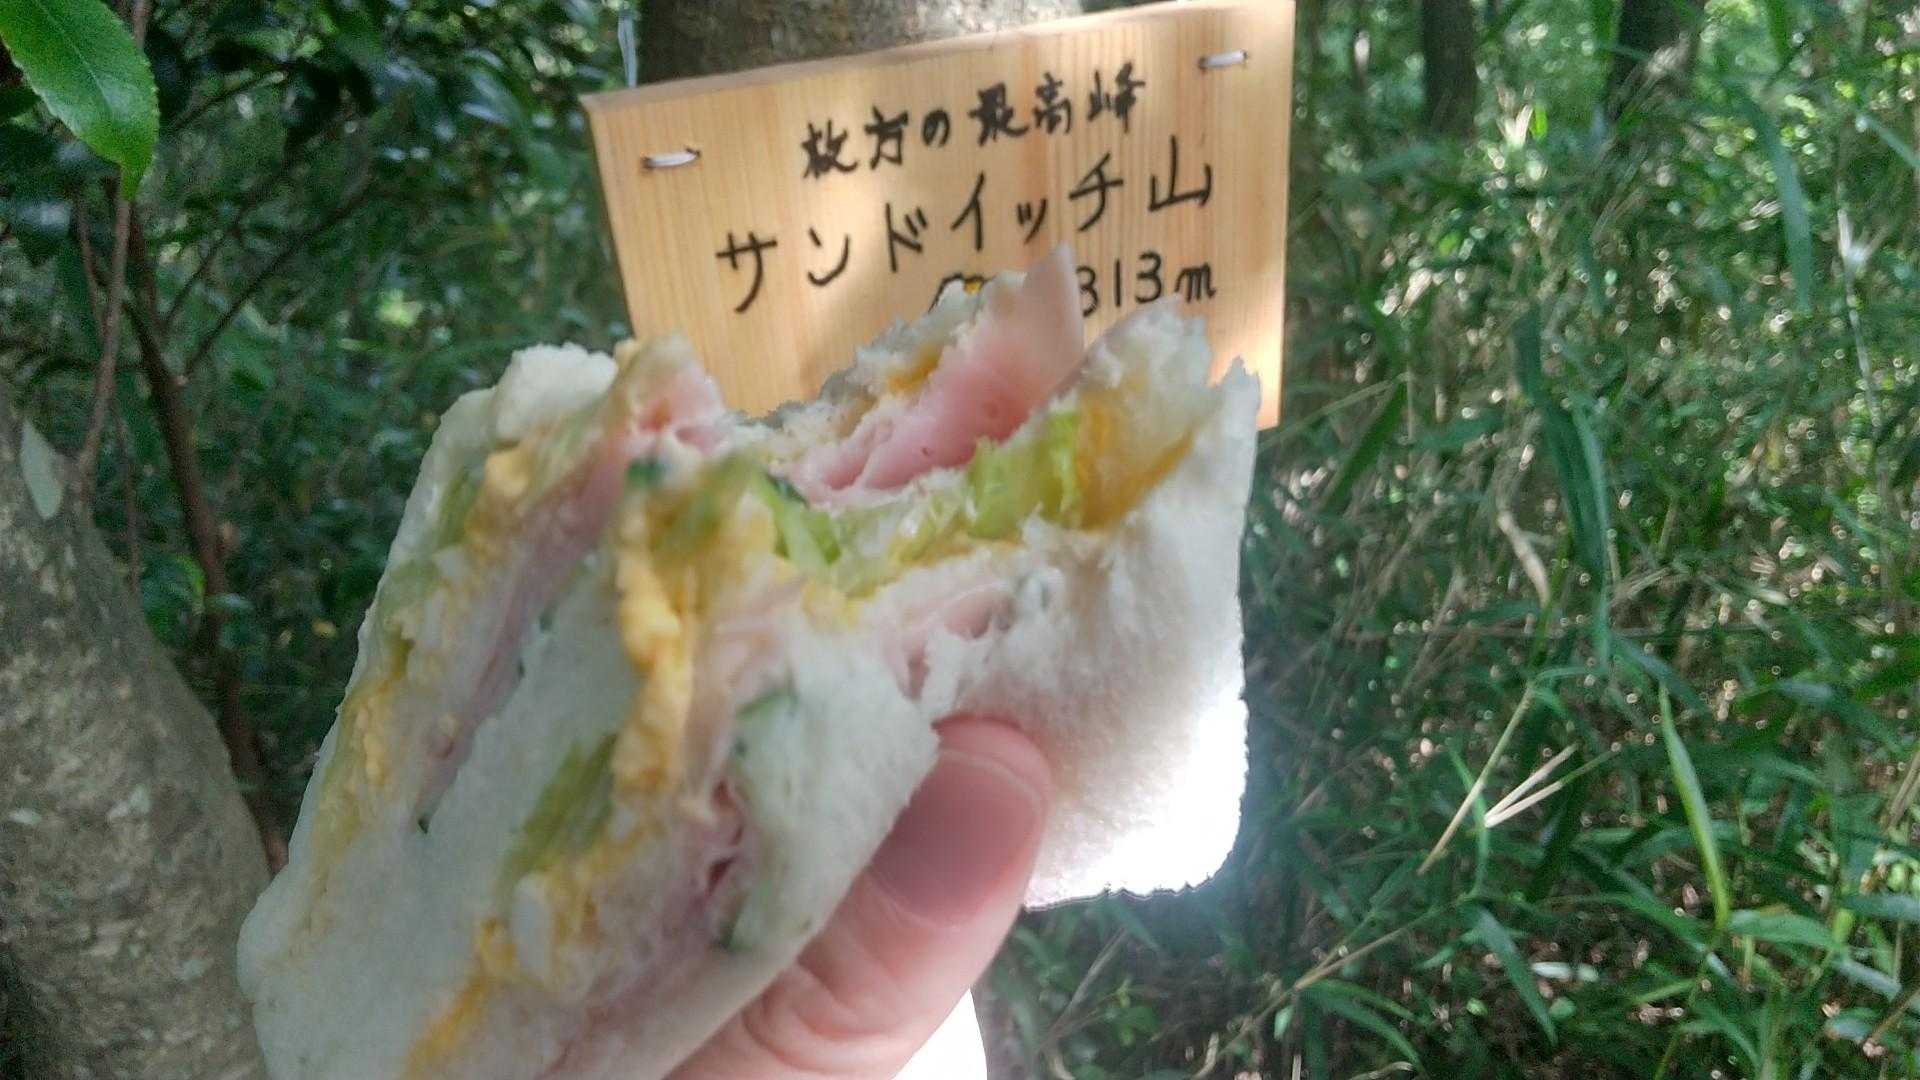 枚方の最高峰
サンドイッチ山
313m